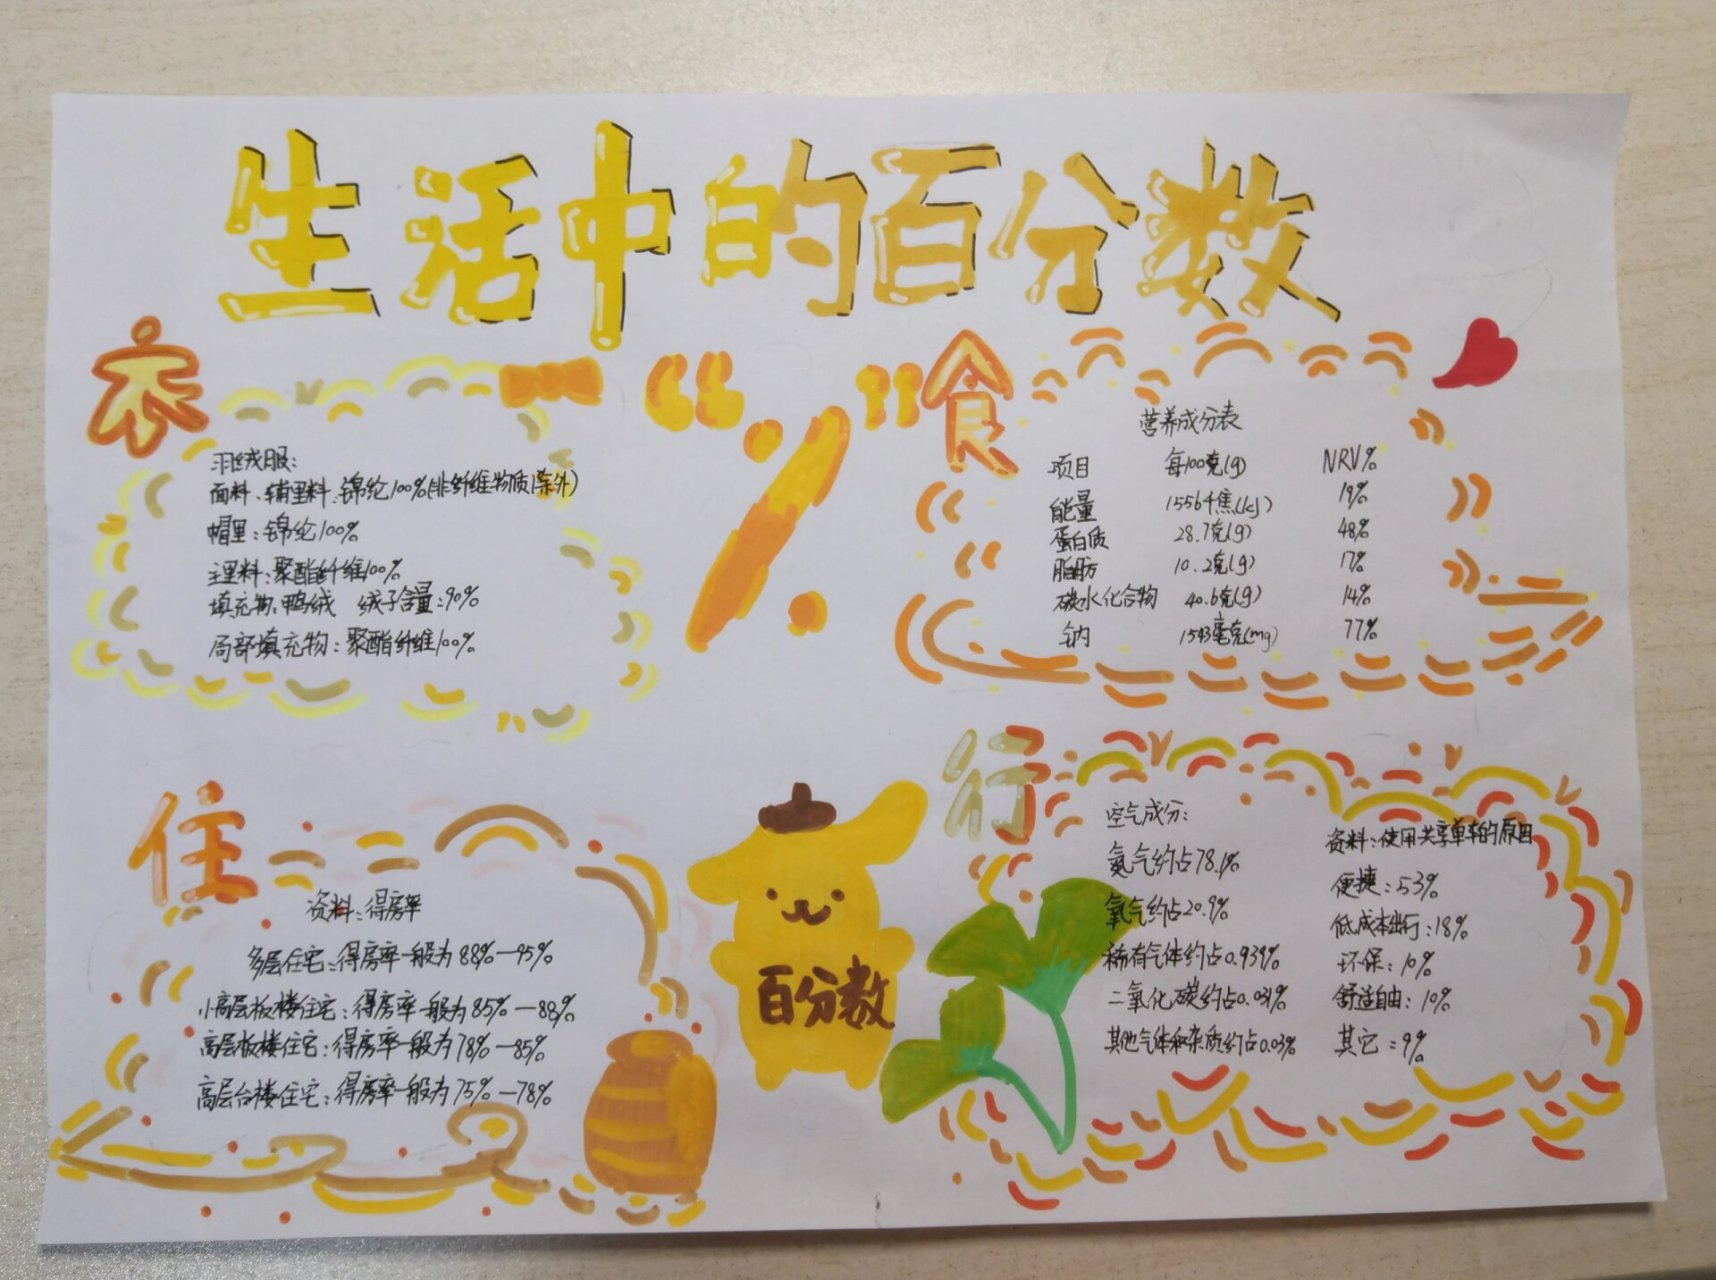 生活中的百分数
衣
羽绒服：
面料、辅里料：锦纶100%(非纤维物质除外)
帽里：锦纶100%
主里料：聚酯纤维100%
填充物：鸭绒 绒子含量：90%
局部填充物：聚酯纤维100%
“%”
食
营养成分表
项目 每100克(g) NRV%
能量 1556千焦(kJ) 19%
蛋白质 28.7克(g) 48%
脂肪 10.2克(g) 17%
碳水化合物 40.6克(g) 14%
钠 1543毫克(mg) 77%
住
资料：得房率
多层住宅：得房率一般为88%—95%
小高层板楼住宅：得房率一般为85%—88%
高层板楼住宅：得房率一般为78%—85%
高层台楼住宅：得房率一般为75%—78%
百分数
行
空气成分：
氮气约占78.1%
氧气约占20.9%
稀有气体约占0.939%
二氧化碳约占0.031%
其他气体和杂质约占0.03%
资料：使用共享单车的原因
便捷：53%
低成本出行：18%
环保：10%
舒适自由：10%
其它：9%